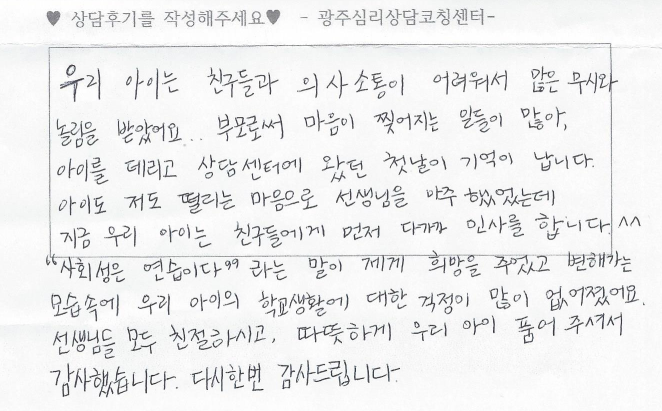 ♥ 상담후기를 작성해주세요♥ - 광주심리상담코칭센터-
우리 아이는 친구들과 의사소통이 어려워서 많은 무시와
놀림을 받았어요.. 부모로써 마음이 찢어지는 일들이 많아,
아이를 데리고 상담센터에 왔던 첫날이 기억이 납니다.
아이도 저도 떨리는 마음으로 선생님을 마주 했었는데
지금 우리 아이는 친구들에게 먼저 다가가 인사를 합니다.^^
"사회성은 연습이다" 라는 말이 제게 희망을 주었고 변해가는
모습속에 우리 아이의 학교생활에 대한 걱정이 많이 없어졌어요.
선생님들 모두 친절하시고, 따뜻하게 우리 아이 품어 주셔서
감사했습니다. 다시한번 감사드립니다-